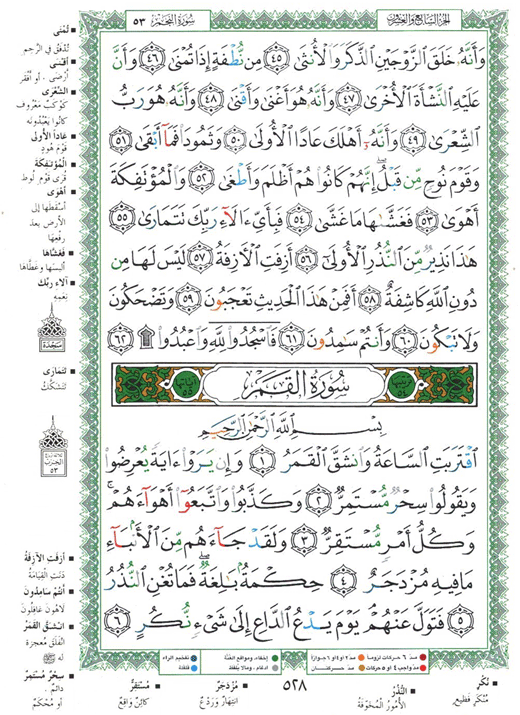 الجزء السابع والعشرون
سورة النجم ٥٣
وَأَنَّهُۥ خَلَقَ ٱلزَّوْجَيْنِ ٱلذَّكَرَ وَٱلْأُنثَىٰ ٤٥ مِن نُّطْفَةٍ إِذَا تُمْنَىٰ ٤٦ وَأَنَّ
عَلَيْهِ ٱلنَّشْأَةَ ٱلْأُخْرَىٰ ٤٧ وَأَنَّهُۥ هُوَ أَغْنَىٰ وَأَقْنَىٰ ٤٨ وَأَنَّهُۥ هُوَ رَبُّ
ٱلشِّعْرَىٰ ٤٩ وَأَنَّهُۥٓ أَهْلَكَ عَادًا ٱلْأُولَىٰ ٥٠ وَثَمُودَا۟ فَمَآ أَبْقَىٰ ٥١
وَقَوْمَ نُوحٍ مِّن قَبْلُ إِنَّهُمْ كَانُوا۟ هُمْ أَظْلَمَ وَأَطْغَىٰ ٥٢ وَٱلْمُؤْتَفِكَةَ
أَهْوَىٰ ٥٣ فَغَشَّىٰهَا مَا غَشَّىٰ ٥٤ فَبِأَىِّ ءَالَآءِ رَبِّكَ تَتَمَارَىٰ ٥٥
هَٰذَا نَذِيرٌ مِّنَ ٱلنُّذُرِ ٱلْأُولَىٰٓ ٥٦ أَزِفَتِ ٱلْءَازِفَةُ ٥٧ لَيْسَ لَهَا مِن
دُونِ ٱللَّهِ كَاشِفَةٌ ٥٨ أَفَمِنْ هَٰذَا ٱلْحَدِيثِ تَعْجَبُونَ ٥٩ وَتَضْحَكُونَ
وَلَا تَبْكُونَ ٦٠ وَأَنتُمْ سَٰمِدُونَ ٦١ فَٱسْجُدُوا۟ لِلَّهِ وَٱعْبُدُوا۟ ۩ ٦٢
سُورَةُ القَمَر
بِسْمِ ٱللَّهِ ٱلرَّحْمَٰنِ ٱلرَّحِيمِ
ٱقْتَرَبَتِ ٱلسَّاعَةُ وَٱنشَقَّ ٱلْقَمَرُ ١ وَإِن يَرَوْا۟ ءَايَةً يُعْرِضُوا۟
وَيَقُولُوا۟ سِحْرٌ مُّسْتَمِرٌّ ٢ وَكَذَّبُوا۟ وَٱتَّبَعُوٓا۟ أَهْوَآءَهُمْ ۚ
وَكُلُّ أَمْرٍ مُّسْتَقِرٌّ ٣ وَلَقَدْ جَآءَهُم مِّنَ ٱلْأَنۢبَآءِ
مَا فِيهِ مُزْدَجَرٌ ٤ حِكْمَةٌۢ بَٰلِغَةٌ ۖ فَمَا تُغْنِ ٱلنُّذُرُ
٥ فَتَوَلَّ عَنْهُمْ ۘ يَوْمَ يَدْعُ ٱلدَّاعِ إِلَىٰ شَىْءٍ نُّكُرٍ ٦
تُمْنَى
تُدفَقُ في الرَّحِمِ
أَقْنَى
أَرْضَى، أو أفْقَرَ
الشِّعْرَى
كوكَبٌ مَعْروف
كانوا يَعْبُدُونَه
عَاداً الأُولَى
قَوْمَ هُودٍ
الْمُؤْتَفِكَةَ
قُرَى قَوْمِ لُوطٍ
أَهْوَى
أسْقَطَها إلى
الأرضِ بعدَ
رَفْعِها
فَغَشَّاهَا
ألبَسَها وغَطَّاها
آلاءِ رَبِّكَ
نِعَمِهِ
السجدة
تَتَمَارَى
تَتَشَكَّكُ
الحزب
٥٣
أَزِفَتِ الآزِفَةُ
دَنَتِ القِيَامَةُ
أَنْتُمْ سَامِدُونَ
لاهُونَ غافِلُونَ
انْشَقَّ القَمَرُ
انْفَلَقَ مُعْجِزةً
له ﷺ
سِحْرٌ مُسْتَمِرٌّ
دَائمٌ،
أو مُحْكَمٌ
مدّ ٦ حركات لزوماً مدّ ٢ أو ٤ أو ٦ جوازاً إخفاء، ومواقع الغُنَّة تفخيم الراء
مدّ واجب ٤ أو ٥ حركات مدّ حركتان إدغام، وما لا يُلفظ قلقلة
مُسْتَقِرٌّ
كائِنٌ وَاقِعٌ
مُزْدَجَرٌ
انْتِهَارٌ ورَدْعٌ
٥٢٨
النُّذُرُ
الأُمورُ المُخَوِّفَةُ
نُكُرٍ
مُنْكَرٍ فَظِيعٍ